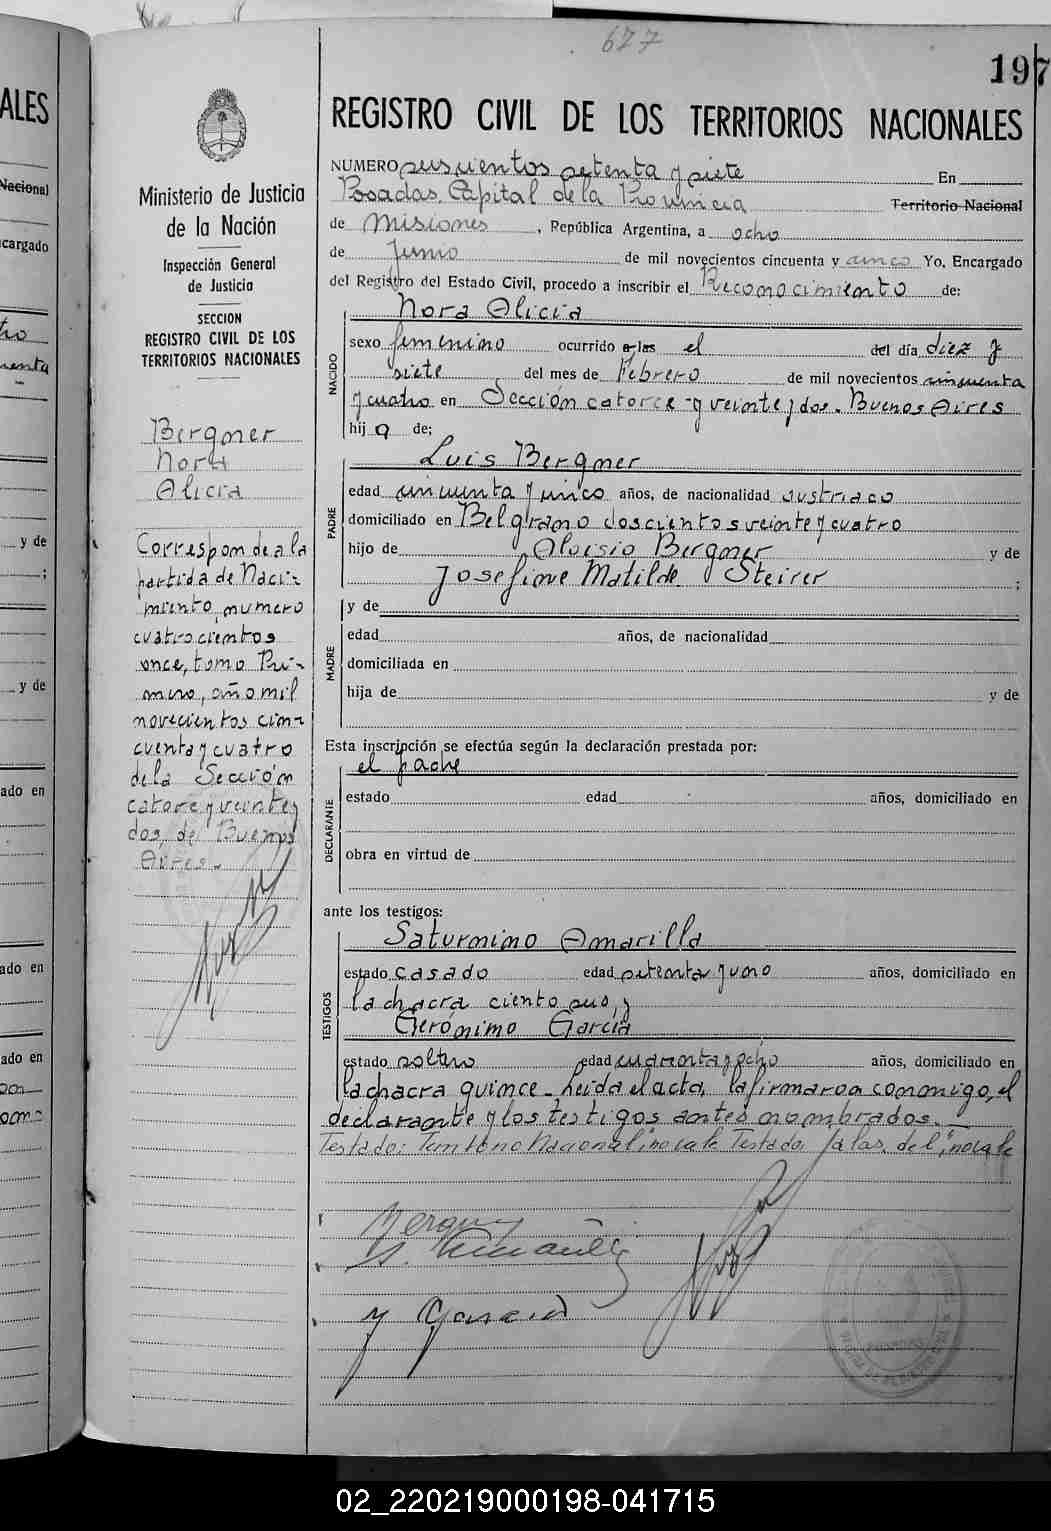 677
197
ALES
Nacional
cargado
y de
;
y de
ado en
ado en
ado en
Ministerio de Justicia
de la Nación
Inspección General
de Justicia
SECCION
REGISTRO CIVIL DE LOS
TERRITORIOS NACIONALES
Bergmer
Nora
Alicia
Corresponde a la
partida de Naci-
miento, numero
cuatrocientos
once, tomo Pri-
mero, año mil
novecientos cin-
cuenta y cuatro
de la Sección
catorce y veinte y
dos, de Buenos
Aires.-
REGISTRO CIVIL DE LOS TERRITORIOS NACIONALES
NUMERO seiscientos setenta y siete En
Posadas, Capital de la Provincia Territorio Nacional
de Misiones, República Argentina, a ocho
de Junio de mil novecientos cincuenta y cinco Yo, Encargado
del Registro del Estado Civil, procedo a inscribir el Reconocimiento de:
NACIDO
Nora Alicia
sexo femenino ocurrido a las el del día diez y
siete del mes de Febrero de mil novecientos cincuenta
y cuatro en Sección catorce y veinte y dos. Buenos Aires
hija de;
PADRE
Luis Bergmer
edad cincuenta y cinco años, de nacionalidad austriaco
domiciliado en Belgrano doscientos veinte y cuatro
hijo de Aloisio Bergmer y de
Josefine Matilde Steirer ;
MADRE
y de
edad años, de nacionalidad
domiciliada en
hija de y de
Esta inscripción se efectúa según la declaración prestada por:
DECLARANTE
el padre
estado edad años, domiciliado en
obra en virtud de
ante los testigos:
TESTIGOS
Saturnino Amarilla
estado casado edad setenta y uno años, domiciliado en
la chacra ciento seis, y
Gerónimo García
estado soltero edad cuarenta y ocho años, domiciliado en
la chacra quince. Leída el acta, la firmaron conmigo, el
declarante y los testigos antes nombrados.
Testado: Territorio Nacional, no vale Testado "a las, del", no vale
S. Amarilla
García
02_220219000198-041715